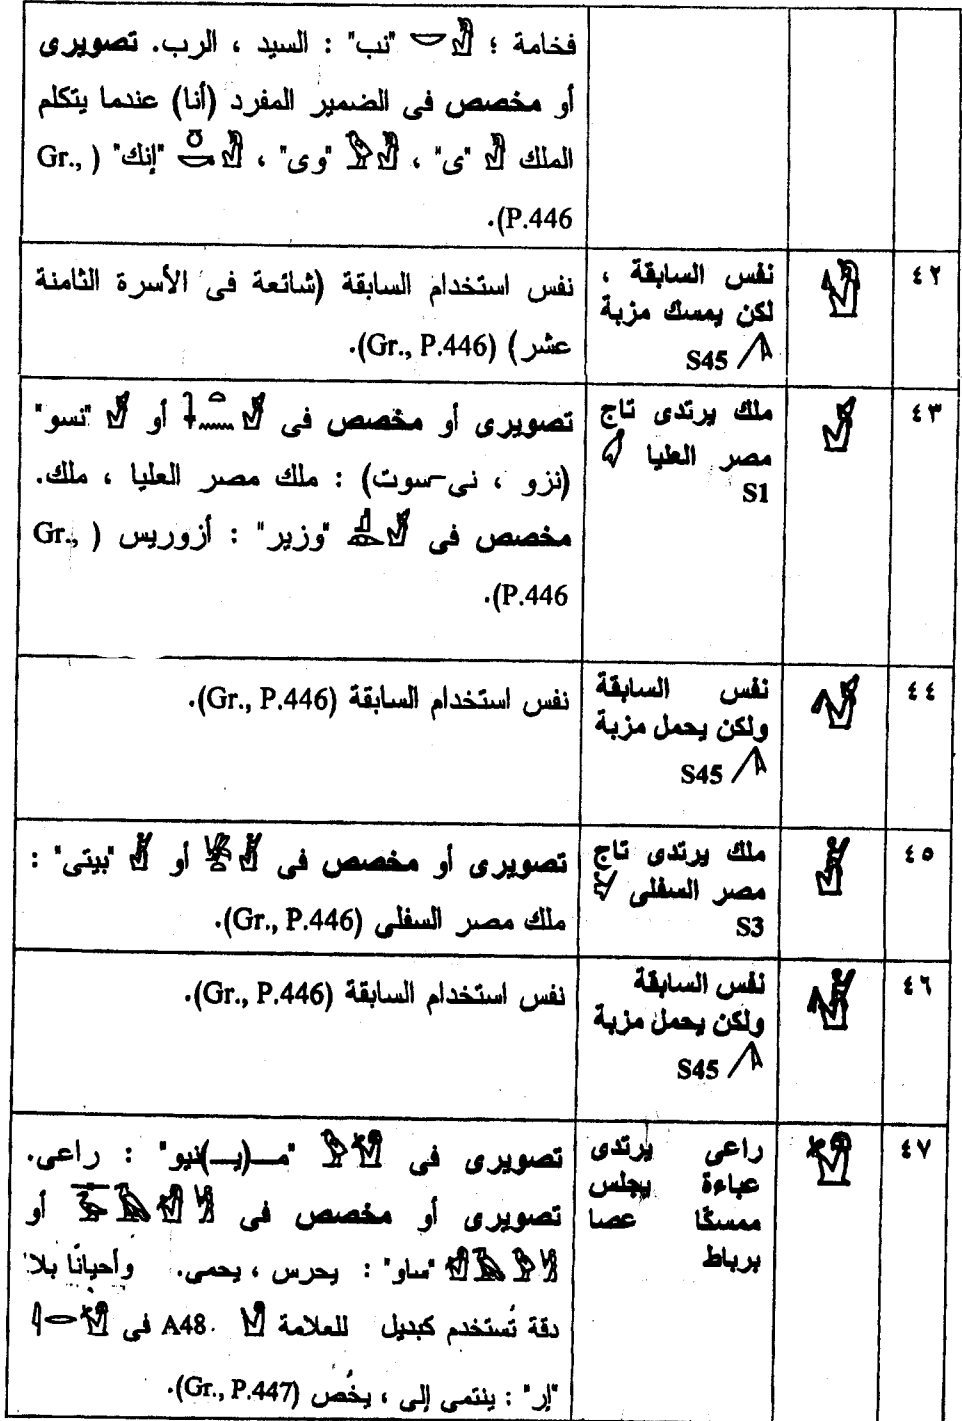 فخامة ؛ "نب" : السيد ، الرب. تصويرى
أو مخصص فى الضمير المفرد (أنا) عندما يتكلم
الملك "ى" ، "وى" ، "إنك" (Gr.,
P.446).
٤٢
نفس السابقة ،
لكن يمسك مزبة
S45
نفس استخدام السابقة (شائعة فى الأسرة الثامنة
عشر) (Gr., P.446).
٤٣
ملك يرتدى تاج
مصر العليا
S1
تصويرى أو مخصص فى أو "نسو"
(نزو ، نى-سوت) : ملك مصر العليا ، ملك.
مخصص فى "وزير" : أزوريس (Gr.,
P.446).
٤٤
نفس السابقة
ولكن يحمل مزبة
S45
نفس استخدام السابقة (Gr., P.446).
٤٥
ملك يرتدى تاج
مصر السفلى
S3
تصويرى أو مخصص فى أو "بيتى" :
ملك مصر السفلى (Gr., P.446).
٤٦
نفس السابقة
ولكن يحمل مزبة
S45
نفس استخدام السابقة (Gr., P.446).
٤٧
راعى يرتدى
عباءة يجلس
ممسكًا عصا
برباط
تصويرى فى "مـــ(يـــ)نيو" : راعى.
تصويرى أو مخصص فى أو
"ساو" : يحرس ، يحمى. وأحيانًا بلا
دقة تُستخدم كبديل للعلامة A48. فى
"إر" : ينتمى إلى ، يخُص (Gr., P.447).